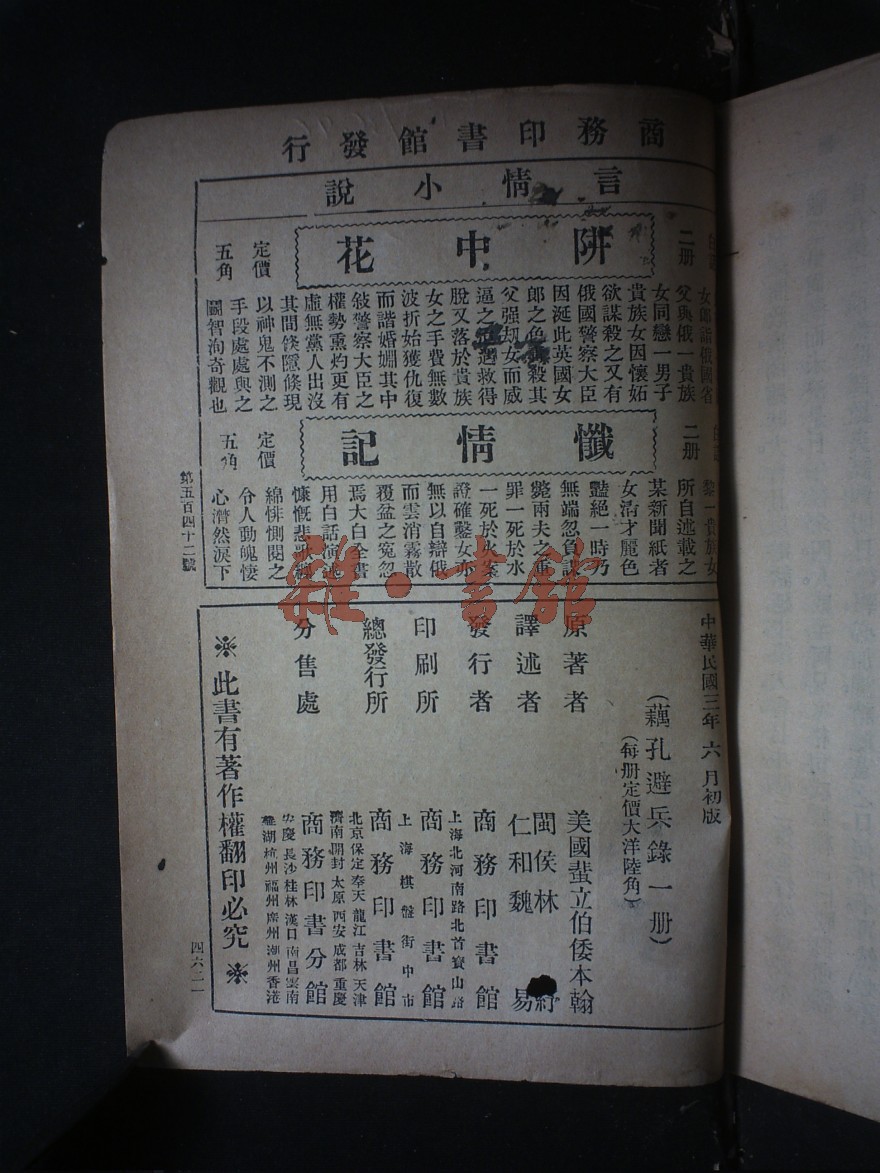 商務印書館發行
言情小說
二册
阱中花
定價
五角
女郎詣俄國省
父與俄一貴族
女同戀一男子
貴族女因懷妬
欲謀殺之又有
俄國警察大臣
因涎此英國女
郎之色
殺其
父强刼女而威
逼之
遇救得
脫又落於貴族
女之手費無數
波折始獲仇復
而諧婚姻其中
敍警察大臣之
權勢熏灼更有
虛無黨人出沒
其間倐隱倐現
以神鬼不測之
手段處處與之
鬭智洵奇觀也
二册
懺情記
定價
五角
一貴族女
所自述載之
某新聞紙者
女淸才麗色
豔絕一時乃
無端忽負謀
斃兩夫之重
罪一死於水
一死於火案
證確鑿女亦
無以自辯俄
而雲消霧散
覆盆之寃忽
焉大白全書
用白話演述
慷慨悲歌纏
綿悱惻閱之
令人動魄悽
心潸然淚下
第五百四十二號
中華民國三年六月初版
(藕孔避兵錄一册)
(每册定價大洋陸角)
原著者
美國蜚立伯倭本翰
譯述者
閩侯林紓
仁和魏易
發行者
商務印書館
上海北河南路北首寶山路
印刷所
商務印書館
上海棋盤街中市
總發行所
商務印書館
北京保定奉天龍江吉林天津
濟南開封太原西安成都重慶
分售處
商務印書分館
安慶長沙桂林漢口南昌雲南
蕪湖杭州福州廣州潮州香港
※此書有著作權翻印必究※
四六二一
雜·書館